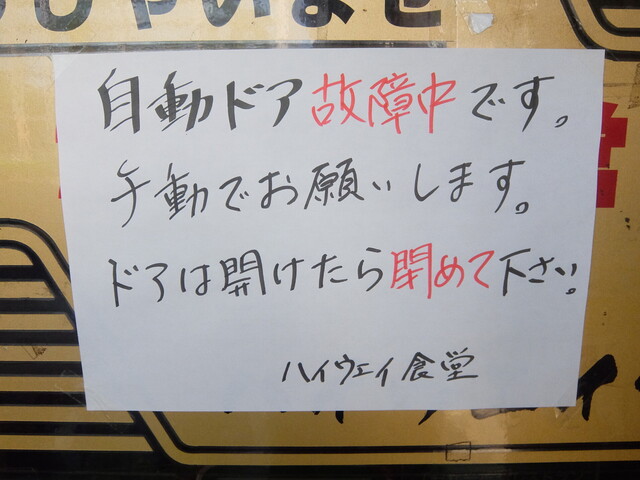 っしゃいませ
自動ドア故障中です。
手動でお願いします。
ドアは開けたら閉めて下さい。
ハイウェイ食堂